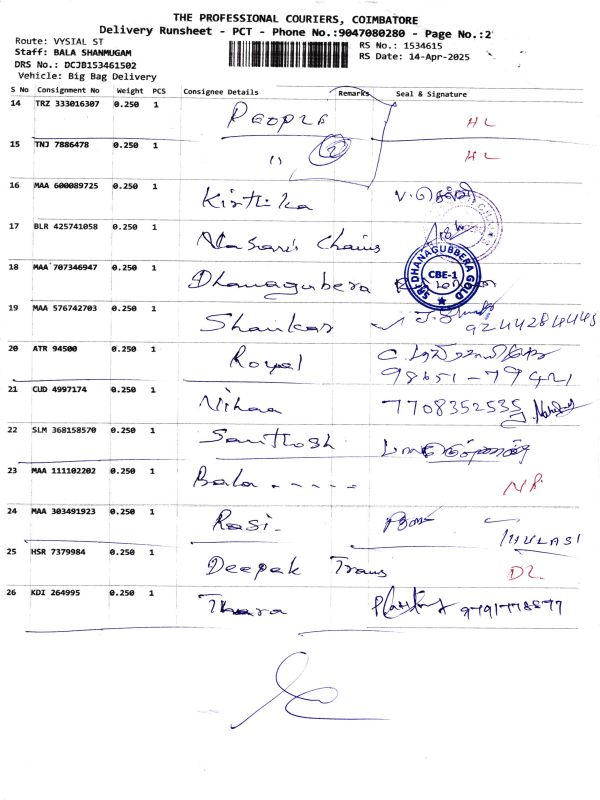 THE PROFESSIONAL COURIERS, COIMBATORE
Delivery Runsheet - PCT - Phone No.:9047080280 - Page No.:2
Route: VYSIAL ST
RS No.: 1534615
Staff: BALA SHANMUGAM
RS Date: 14-Apr-2025
DRS No.: DCJB153461502
Vehicle: Big Bag Delivery
S No Consignment No Weight PCS Consignee Details Remarks Seal & Signature
14 TRZ 333016307 0.250 1 PEOPLE HL
15 TNJ 7886478 0.250 1 11 2 HL
16 MAA 600089725 0.250 1 Kirthika
17 BLR 425741058 0.250 1 Chains
18 MAA 707346947 0.250 1 Dhanagubera
SRI DHANAGUBBERA GOLD
CBE-1
19 MAA 576742703 0.250 1 Shankar 9244284445
20 ATR 94500 0.250 1 Royal
98651-79421
21 CUD 4997174 0.250 1 Nihaa 7708352535
22 SLM 368158570 0.250 1 Santhosh
23 MAA 111102202 0.250 1 Bala ----- NR
24 MAA 303491923 0.250 1 Rasi -
25 HSR 7379984 0.250 1 Deepak Trans DL
26 KDI 264995 0.250 1 Thara 9791778577